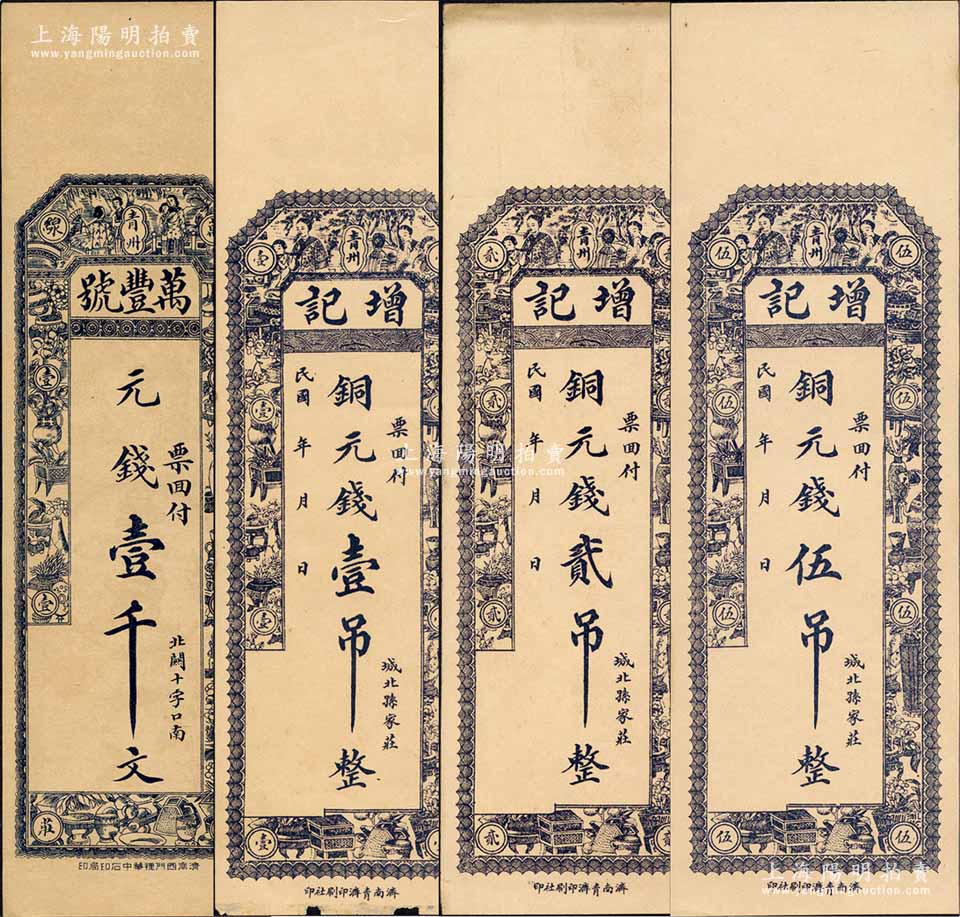 上海陽明拍賣
www.yangmingauction.com
青州
萬豐號
票回付
元錢壹千文
北關十字口南
壹
壹
莊
濟南西門裡華中石印局印
青州
壹
增記
票回付
銅元錢壹吊整
民國 年 月 日
城北孫家莊
壹
壹
壹
濟南青濟印刷社印
青州
貳
增記
票回付
銅元錢貳吊整
民國 年 月 日
城北孫家莊
貳
貳
貳
濟南青濟印刷社印
青州
伍
伍
增記
票回付
銅元錢伍吊整
民國 年 月 日
城北孫家莊
伍
伍
伍
伍
伍
伍
濟南青濟印刷社印
上海陽明拍賣
www.yangmingauction.com
上海陽明拍賣
www.yangmingauction.com